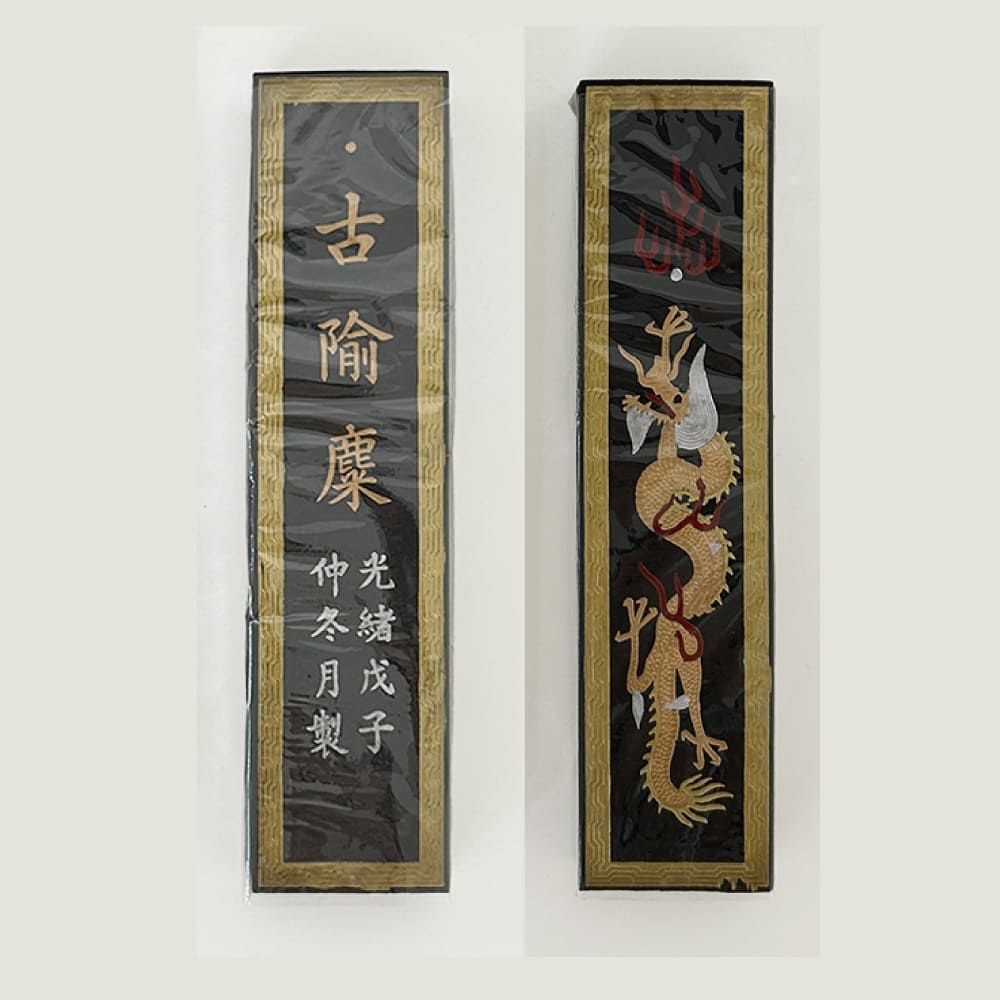 古隃麋
光緒戊子
仲冬月製